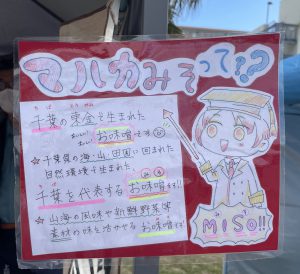 マルカみそって??
ちば とうがね
千葉の東金で生まれた
お味噌です
☆千葉県の海、山、田園に囲まれた
自然環境で生まれ、
千葉を代表するお味噌です!
☆山海の風味や新鮮野菜等
素材の味を活かせるお味噌です
MISO!!